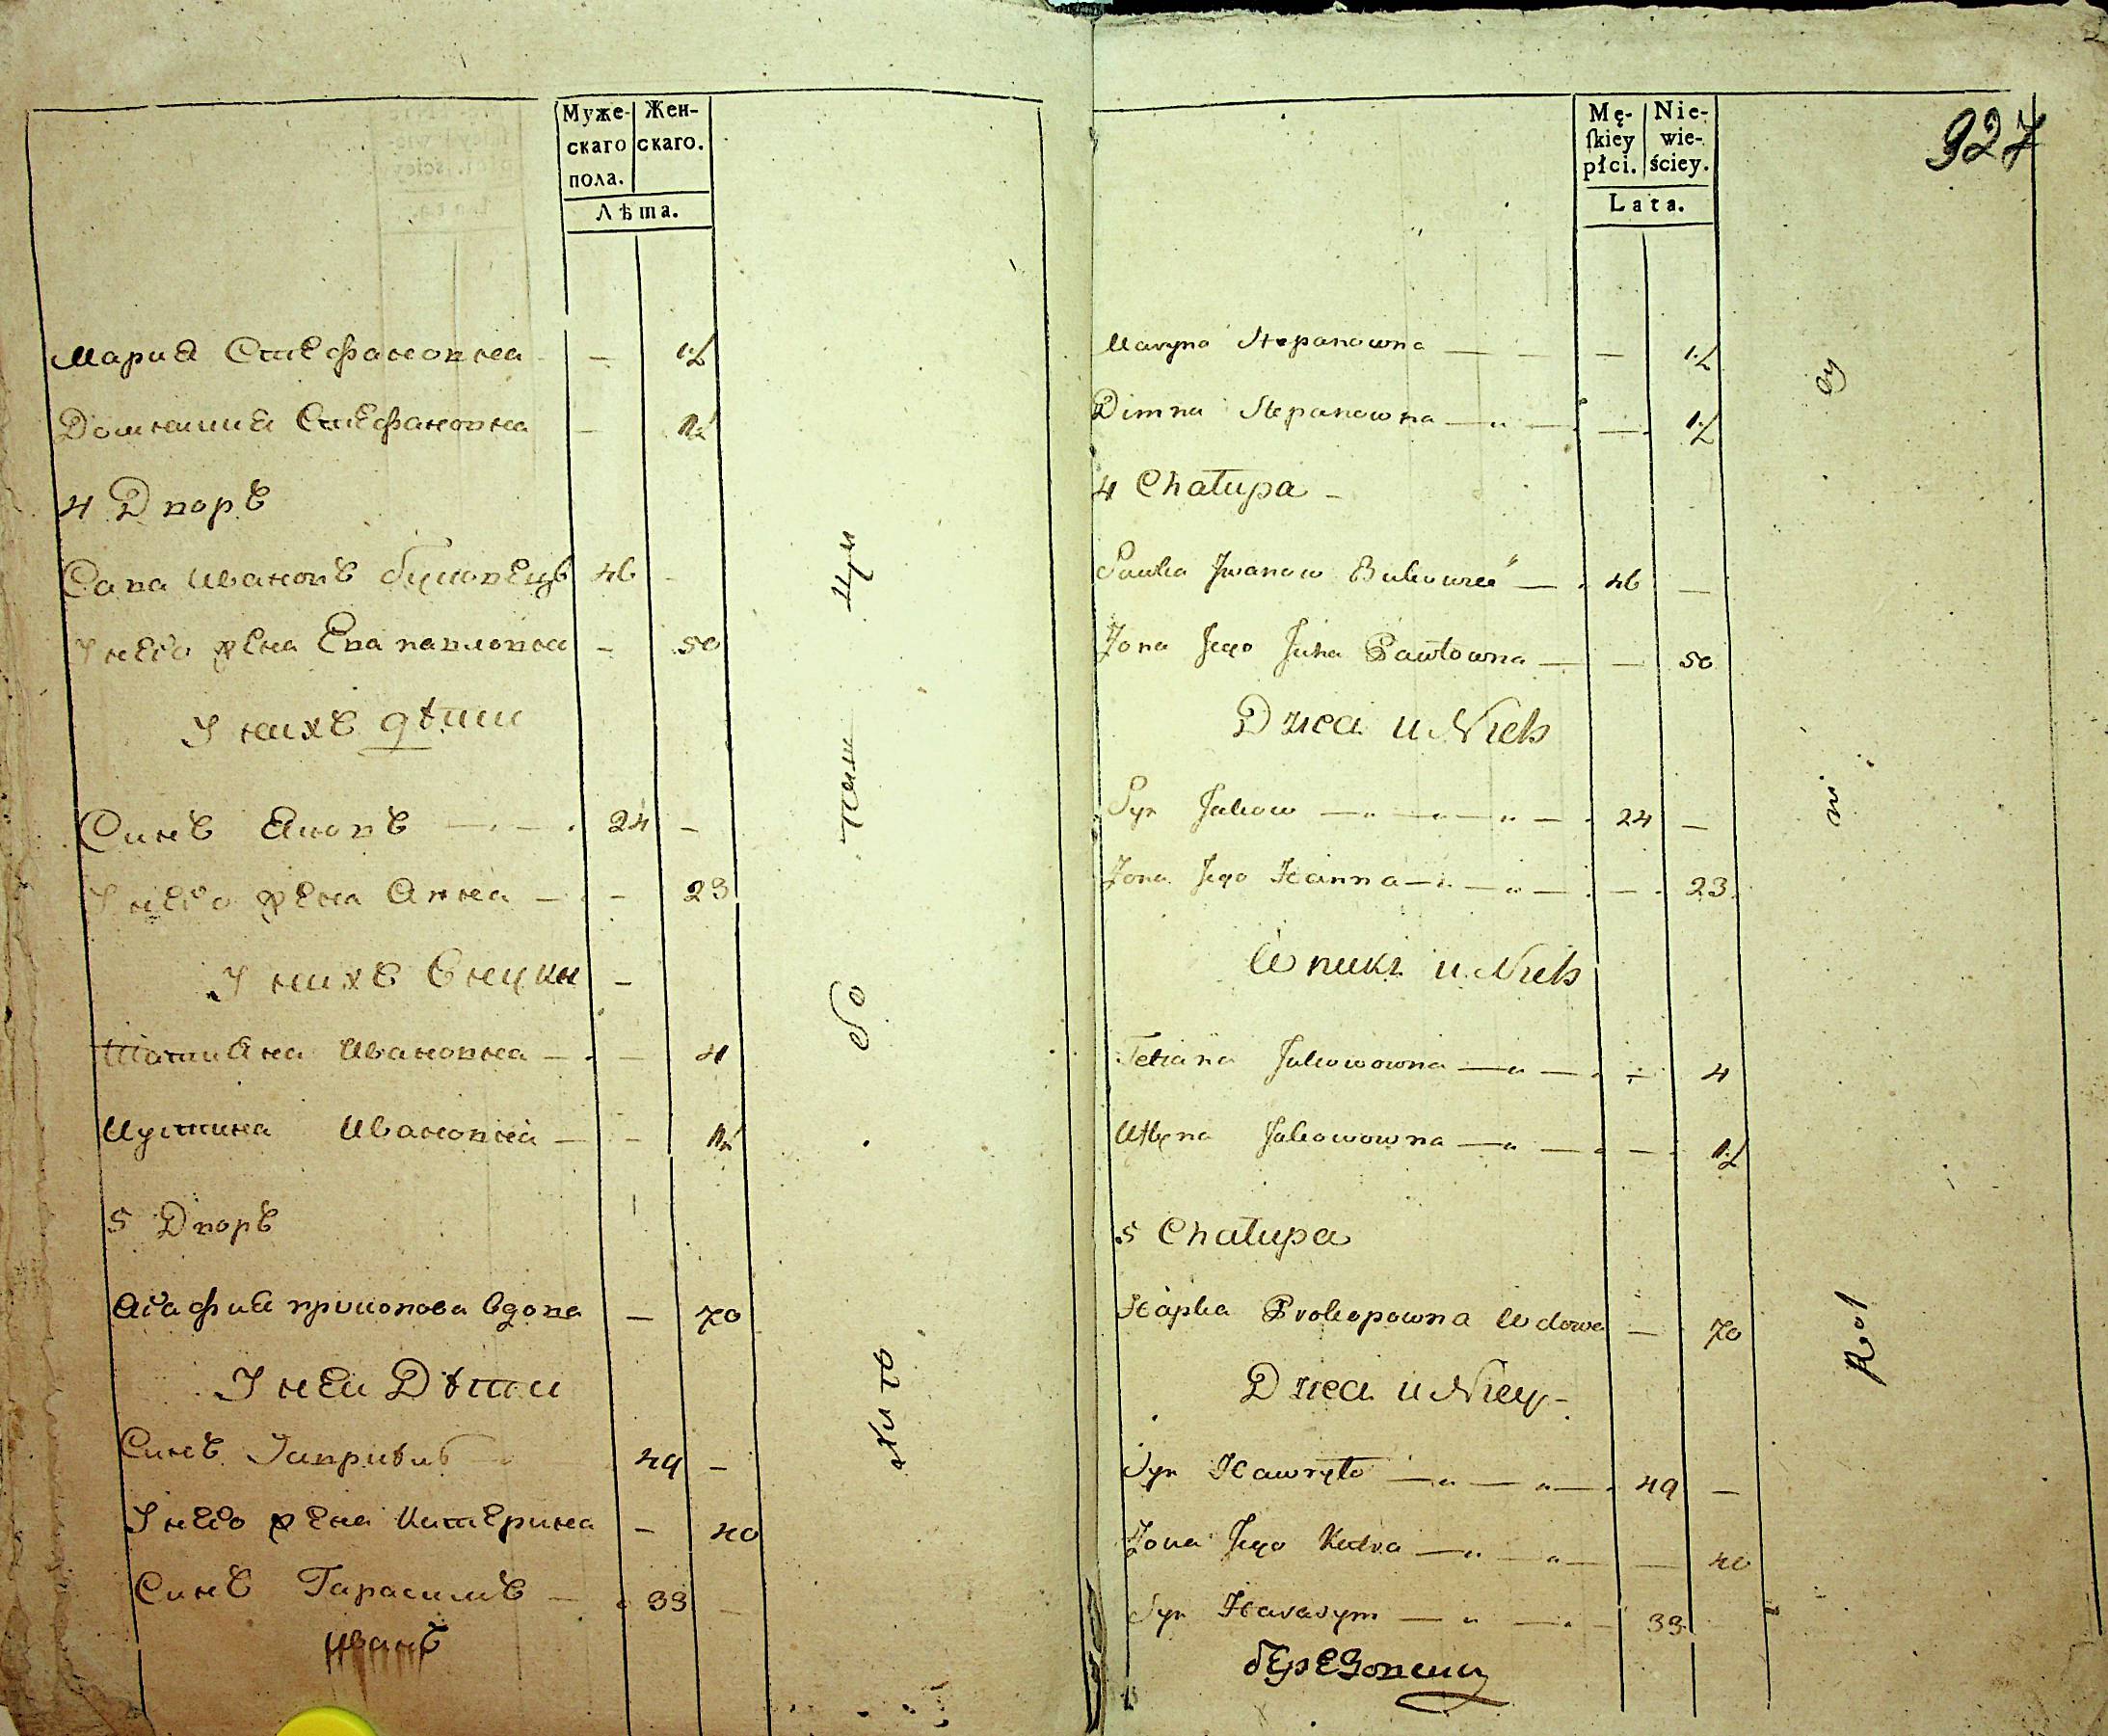 Муже-
скаго
пола.
Жен-
скаго.
Лѣта.
Мария Стефановна — 1½
Домникия Стефановна — 1½
4 Дворъ
Сава Ивановъ буковецъ 46 -
У него жена Ева павловна - 50
У нихъ дѣти
Синъ Яковъ — 24 -
У него жена Анна — - 23
У нихъ Внуки -
Татияна Ивановна — - 4
Иустина Ивановна — - 1½
5 Дворъ
Агафия прокопова вдова — 70
У неи Дѣти
Синъ Гавриилъ 49 -
У него жена Катерина - 40
Синъ Гарасимъ — 33 -
Иванъ
Mę-
ſkiey
płci.
Nie-
wie-
ściey.
Lata.
927
Maryna Stepanowna — — 1½
Dimna Stepanowna — — 1½
4 Chałupa -
Sawka Jwanow — 46 —
Żona Jego Juha Pawłowna — — 50
Dzieci u Nich
Syn Jakow — 24 —
Żona Jego Hanna — — 23
Wnuki u Nich
Tetiana Jakowowna — — 4
Jakowowna — — 1½
5 Chałupa
Hapka Prokopowna Wdowa — 70
Dzieci u Niey -
Syn Hawryło — 49 —
Żona Jego Kedra — — 40
Syn Harasym — 33
берЕзовски